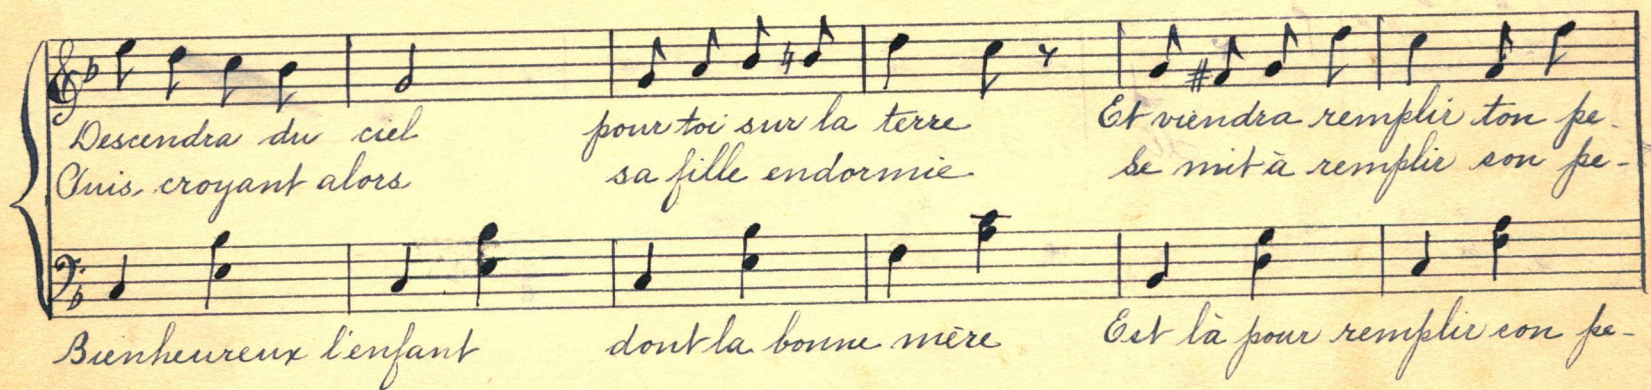 Descendra du ciel pour toi sur la terre Et viendra remplir ton pe-
Puis croyant alors sa fille endormie Se mit à remplir son pe-
Bienheureux l'enfant dont la bonne mère Est là pour remplir son pe-